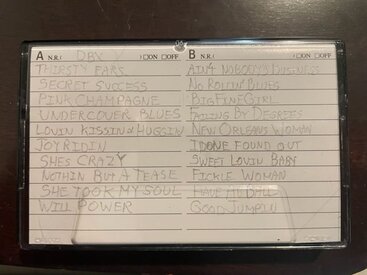 A N.R.( DBX ) □ON □OFF
THIRSTY EARS
SECRET SUCCESS
PINK CHAMPAGNE
UNDERCOVER BLUES
LOVIN KISSIN & HUGGIN
JOYRIDIN
SHES CRAZY
NOTHIN BUT A TEASE
SHE TOOK MY SOUL
WILL POWER
B N.R.( ) □ON □OFF
AIN'T NOBODY'S BUSINESS
NO ROLLIN' BLUES
BIG FINE GIRL
FALLING BY DEGREES
NEW ORLEANS WOMAN
I DONE FOUND OUT
SWEET LOVIN BABY
FICKLE WOMAN
HAVE MY BALL
GOOD JUMPIN